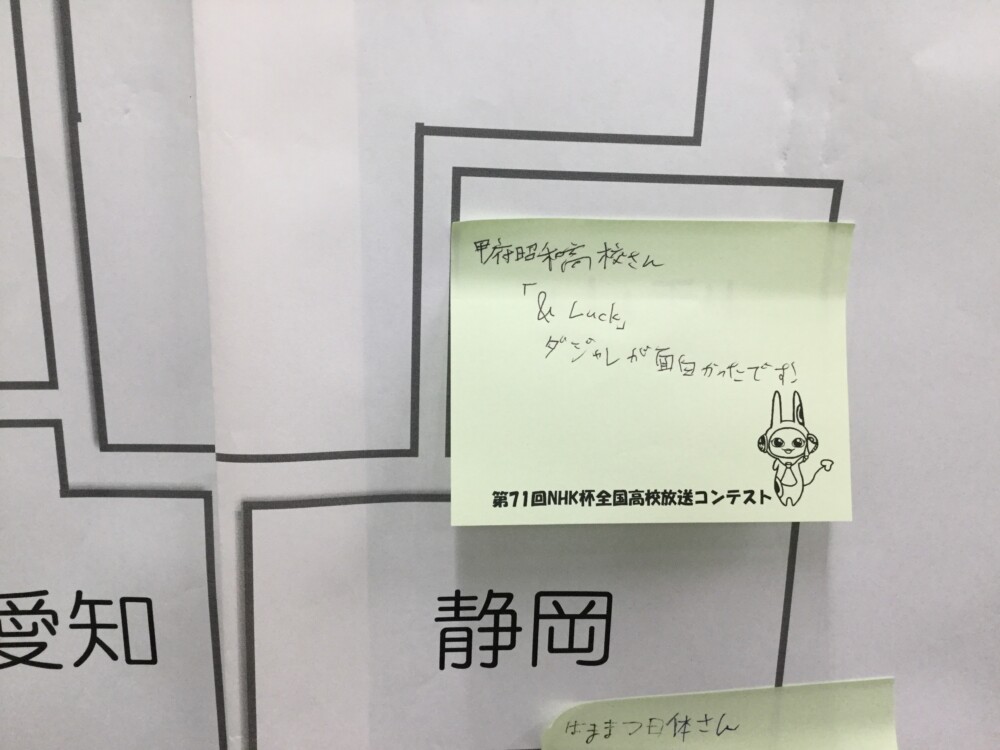 甲府昭和高校さん
「& Luck」
ダジャレが面白かったです!
第71回NHK杯全国高校放送コンテスト
愛知
静岡
はままつ日体さん